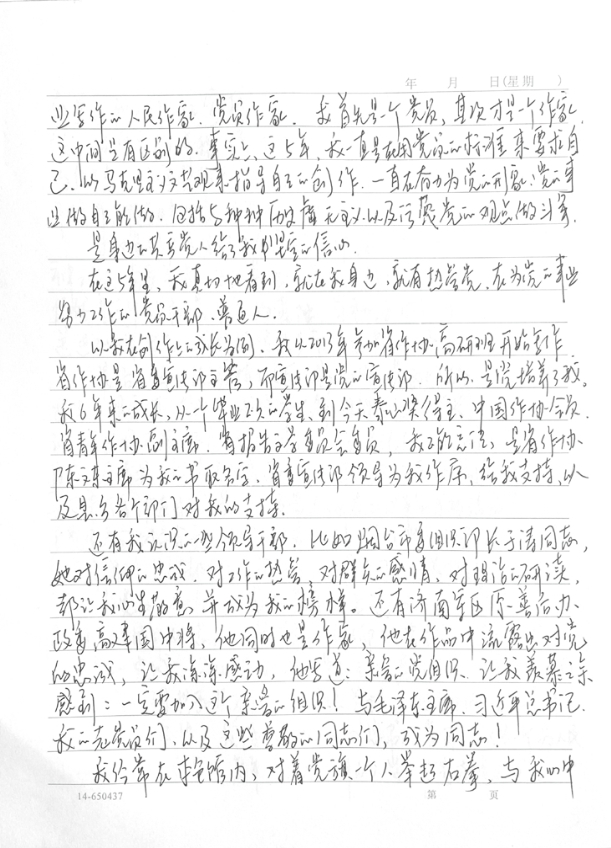 年 月 日(星期 )
业写作的人民作家、党员作家。我首先是一个党员，其次才是一个作家，
这中间是有区别的。事实上，这5年，我一直是在用党员的标准来要求自
己，以马克思主义文艺观来指导自己的创作，一直在奋力为党的形象、党的事
业做自己能做，包括与种种历史虚无主义以及污蔑党的观点做斗争。
是身边的共产党人给了我坚定的信心。
在这5年里，我真切地看到，就在我身边，就有热爱党，在为党的事业
努力工作的党员干部、普通人。
以我在创作上的成长为例。我从2013年参加省作协高研班开始写作，
省作协是省委宣传部主管，而宣传部是党的宣传部。所以，是党培养了我。
我6年来的成长，从一个毕业 的学生，到今天泰山奖得主、中国作协会员、
省青年作协副主席、省报告文学委员会委员，我不能忘怀，是省作协
陈文东主席为我的书取名字，省委宣传部领导为我作序，给我支持，以
及县乡各个部门对我的支持。
还有我认识的一些领导干部。比如烟台市委组织部长于涛同志，
她对信仰的忠诚、对工作的热爱、对群众的感情、对理论的研读，
都让我心生敬意，并成为我的榜样。还有济南军区原善后办
政委高建国中将，他同时也是作家，他在作品中流露出对党
的忠诚，让我深深感动，他写道：亲爱的党组织。让我羡慕之余
感到：一定要加入这个亲爱的组织！与毛泽东主席、习近平总书记、
我的老党员们，以及这些尊敬的同志们，成为同志！
我经常在 馆内，对着党旗一个人举起右拳，与我心中
14-650437 第 页